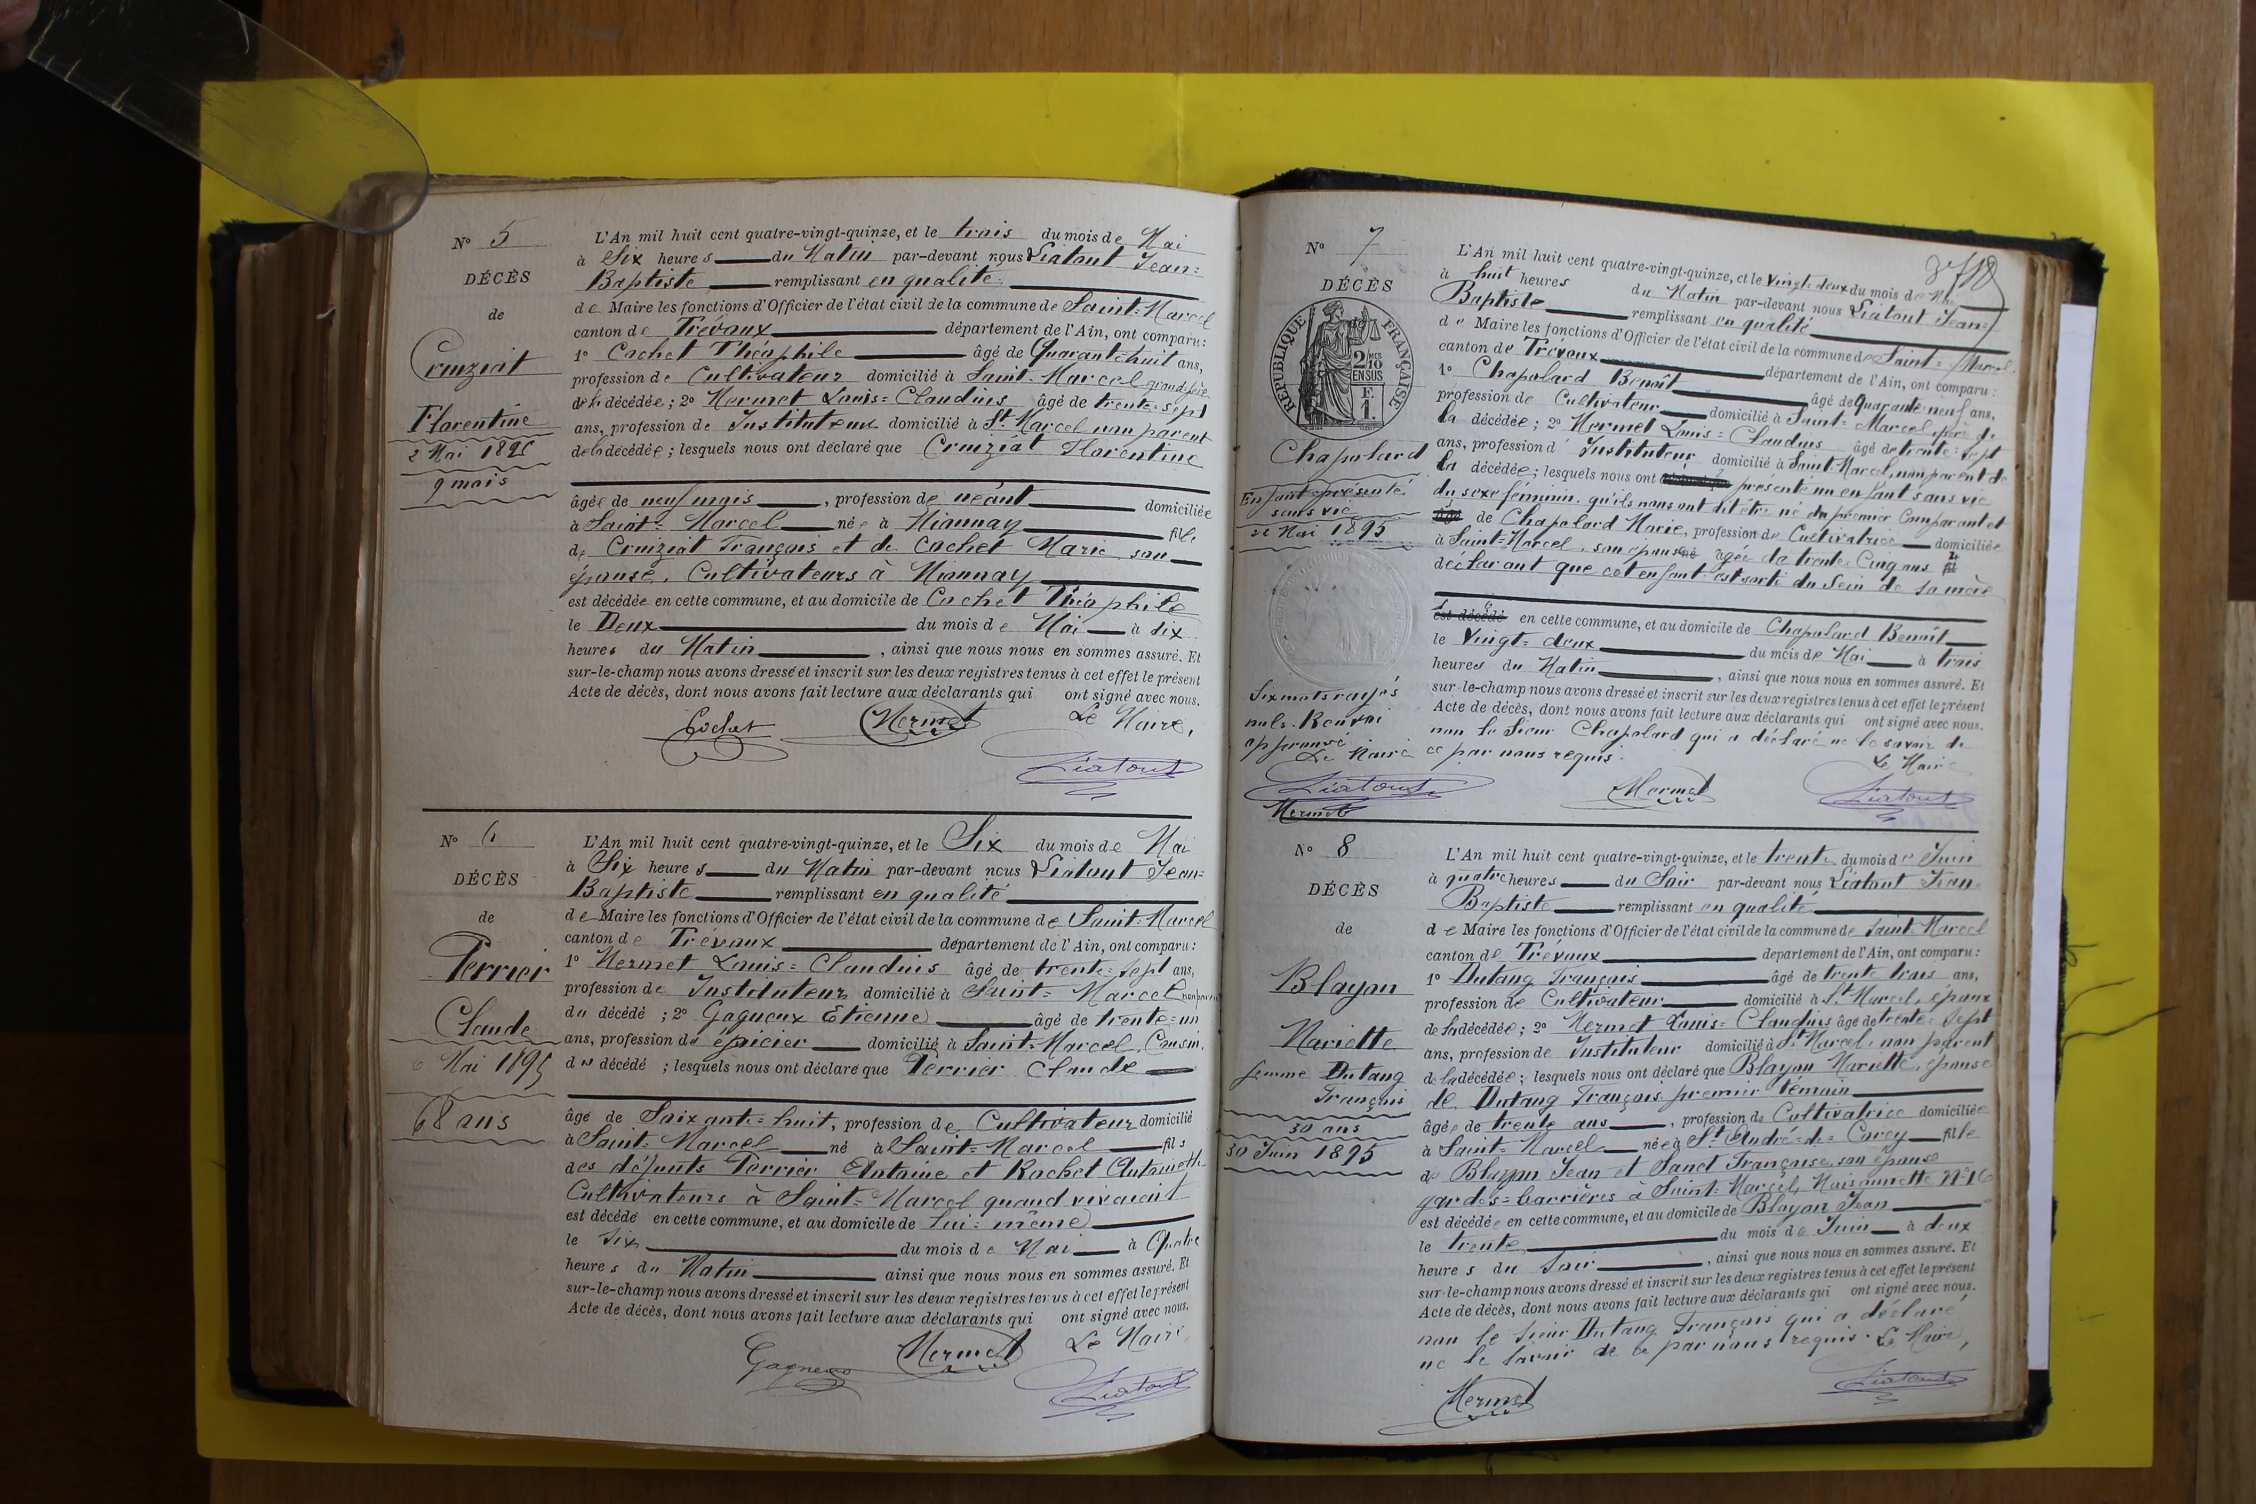 N° 5
DÉCÈS
de
Cruiziat
Florentine
2 Mai 1895
9 mois
L'An mil huit cent quatre-vingt-quinze, et le trois du mois de Mai
à Six heures du Matin par-devant nous Liatout Jean=
Baptiste remplissant en qualité
de Maire les fonctions d'Officier de l'état civil de la commune de Saint=Marcel
canton de Trévoux département de l'Ain, ont comparu:
1° Cochet Théophile âgé de Quarante huit ans,
profession de Cultivateur domicilié à Saint-Marcel grand père
de la décédée; 2° Mermet Louis=Claudius âgé de trente=sept
ans, profession de Instituteur domicilié à St Marcel non parent
de la décédée; lesquels nous ont déclaré que Cruiziat Florentine
âgée de neuf mois, profession de néant domiciliée
à Saint=Marcel née à Mionnay fille
de Cruiziat François et de Cochet Marie son
épouse, Cultivateurs à Mionnay
est décédée en cette commune, et au domicile de Cochet Théophile
le Deux du mois de Mai à six
heures du Matin, ainsi que nous nous en sommes assuré. Et
sur-le-champ nous avons dressé et inscrit sur les deux registres tenus à cet effet le présent
Acte de décès, dont nous avons fait lecture aux déclarants qui ont signé avec nous.
Le Maire,
Cochet Mermet Liatout
N° 6
DÉCÈS
de
Perrier
Claude
6 Mai 1895
68 ans
L'An mil huit cent quatre-vingt-quinze, et le Six du mois de Mai
à Six heures du Matin par-devant nous Liatout Jean=
Baptiste remplissant en qualité
de Maire les fonctions d'Officier de l'état civil de la commune de Saint=Marcel
canton de Trévoux département de l'Ain, ont comparu:
1° Mermet Louis=Claudius âgé de trente=sept ans,
profession de Instituteur domicilié à Saint=Marcel non parent
du décédé; 2° Gagneux Etienne âgé de trente=un
ans, profession d'épicier domicilié à Saint=Marcel, Cousin
du décédé; lesquels nous ont déclaré que Perrier Claude
âgé de Soixante=huit, profession de Cultivateur domicilié
à Saint=Marcel né à Saint=Marcel fils
des défunts Perrier Antoine et Rochet Antoinette
Cultivateurs à Saint=Marcel quand vivaient
est décédé en cette commune, et au domicile de Lui=même
le Six du mois de Mai à Quatre
heures du Matin ainsi que nous nous en sommes assuré. Et
sur-le-champ nous avons dressé et inscrit sur les deux registres tenus à cet effet le présent
Acte de décès, dont nous avons fait lecture aux déclarants qui ont signé avec nous.
Le Maire,
Gagneux Mermet Liatout
N° 7
DÉCÈS
RÉPUBLIQUE FRANÇAISE
2/10 MES
EN SUS
F.
1.
Chapolard
Enfant présenté
sans vie
22 Mai 1895
Six mots rayés
nuls. Renvoi
approuvé
Le Maire
Liatout
Mermet
L'An mil huit cent quatre-vingt-quinze, et le vingt=deux du mois de Mai
à huit heures du Matin par-devant nous Liatout Jean=
Baptiste remplissant en qualité
de Maire les fonctions d'Officier de l'état civil de la commune de Saint=Marcel
canton de Trévoux département de l'Ain, ont comparu:
1° Chapolard Benoît âgé de Quarante=neuf ans,
profession de Cultivateur domicilié à Saint=Marcel, père de
la décédée; 2° Mermet Louis=Claudius âgé de trente=sept
ans, profession d'Instituteur domicilié à Saint-Marcel, non parent de
la décédée; lesquels nous ont présenté un enfant sans vie
du sexe féminin, qu'ils nous ont dit être né du premier Comparant et
de Chapolard Marie, profession de Cultivatrice domiciliée
à Saint=Marcel, son épouse âgée de trente Cinq ans
déclarant que cet enfant est sorti du Sein de sa mère
est décédé en cette commune, et au domicile de Chapolard Benoît
le Vingt=deux du mois de Mai à trois
heures du Matin, ainsi que nous nous en sommes assuré. Et
sur-le-champ nous avons dressé et inscrit sur les deux registres tenus à cet effet le présent
Acte de décès, dont nous avons fait lecture aux déclarants qui ont signé avec nous.
non le Sieur Chapolard qui a déclaré ne le savoir de
ce par nous requis. Le Maire
Mermet Liatout
N° 8
DÉCÈS
de
Blayon
Mariette
femme Dutang
François
30 ans
30 Juin 1895
L'An mil huit cent quatre-vingt-quinze, et le trente du mois de Juin
à quatre heures du Soir par-devant nous Liatout Jean=
Baptiste remplissant en qualité
de Maire les fonctions d'Officier de l'état civil de la commune de Saint=Marcel
canton de Trévoux département de l'Ain, ont comparu:
1° Dutang François âgé de trente trois ans,
profession de Cultivateur domicilié à St Marcel, époux
de la décédée; 2° Mermet Louis=Claudius âgé de trente=sept
ans, profession de Instituteur domicilié à St Marcel, non parent
de la décédée; lesquels nous ont déclaré que Blayon Mariette, épouse
de Dutang François premier témoin
âgée de trente ans, profession de Cultivatrice domiciliée
à Saint=Marcel née à St André=de=Corcy fille
de Blayon Jean et Sanct Françoise, son épouse
gardes=barrières à Saint=Marcel, Maisonnette N° 16
est décédée en cette commune, et au domicile de Blayon Jean
le trente du mois de Juin à deux
heures du Soir, ainsi que nous nous en sommes assuré. Et
sur-le-champ nous avons dressé et inscrit sur les deux registres tenus à cet effet le présent
Acte de décès, dont nous avons fait lecture aux déclarants qui ont signé avec nous.
non le Sieur Dutang François qui a déclaré
ne le savoir de ce par nous requis. Le Maire,
Mermet Liatout